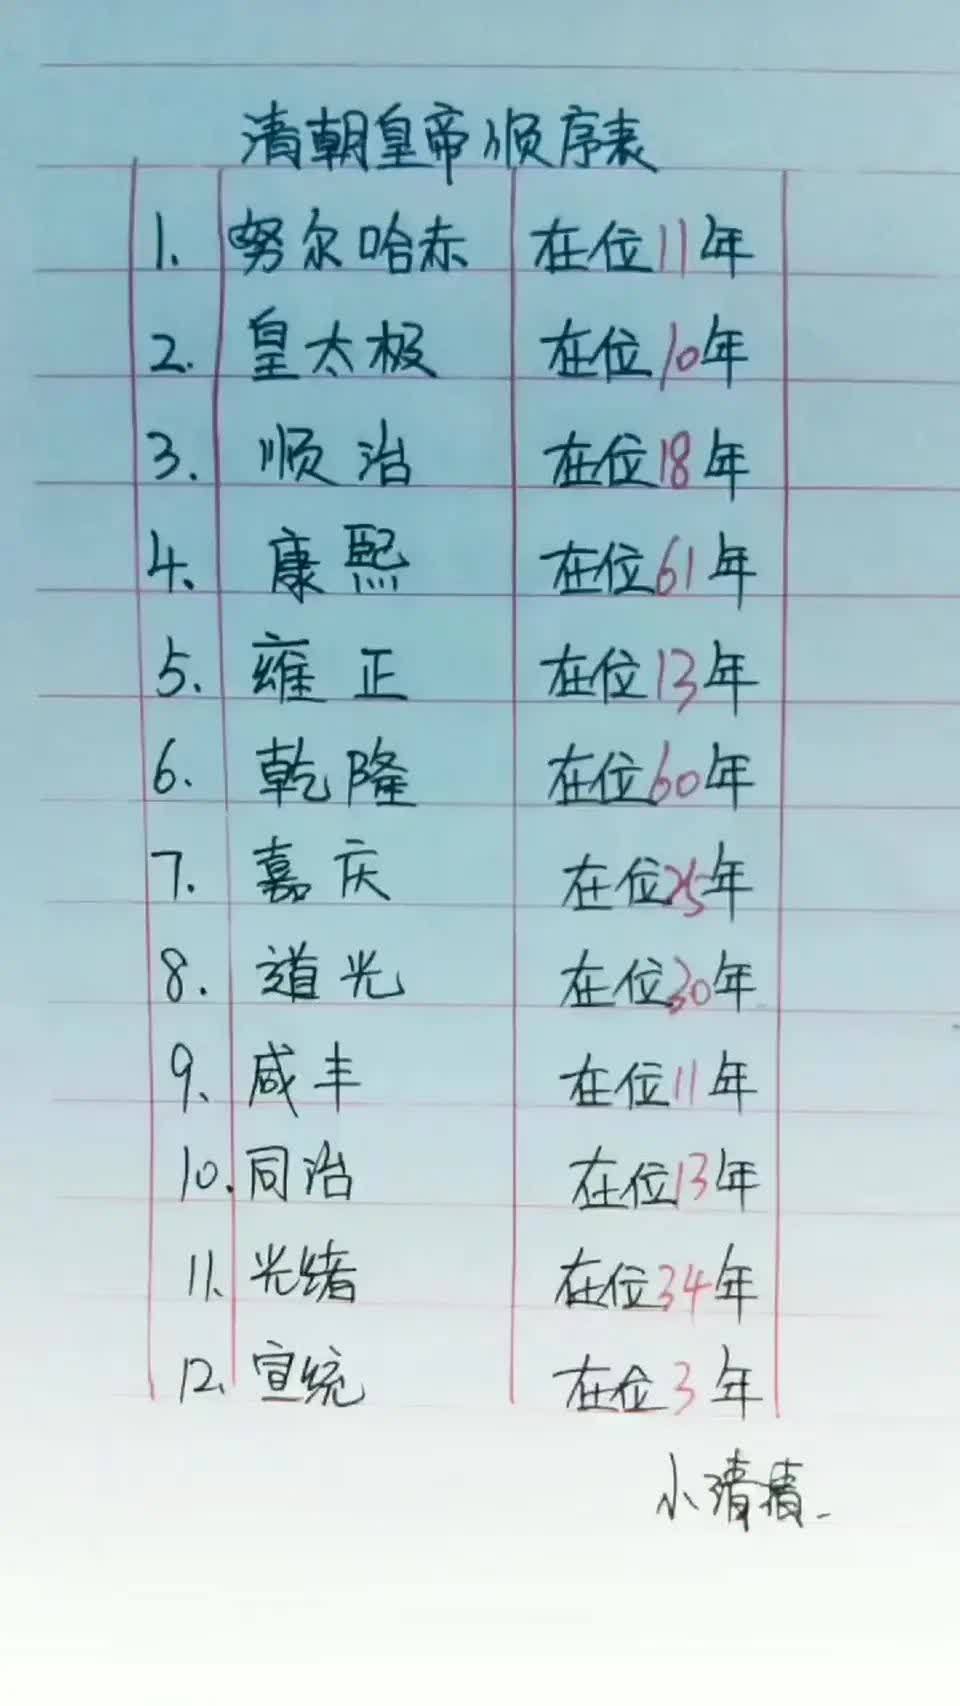 清朝皇帝顺序表
1. 努尔哈赤 在位11年
2. 皇太极 在位10年
3. 顺治 在位18年
4、康熙 在位61年
5. 雍正 在位13年
6. 乾隆 在位60年
7. 嘉庆 在位25年
8. 道光 在位30年
9、咸丰 在位11年
10. 同治 在位13年
11、光绪 在位34年
12、宣统 在位3年
小清清.